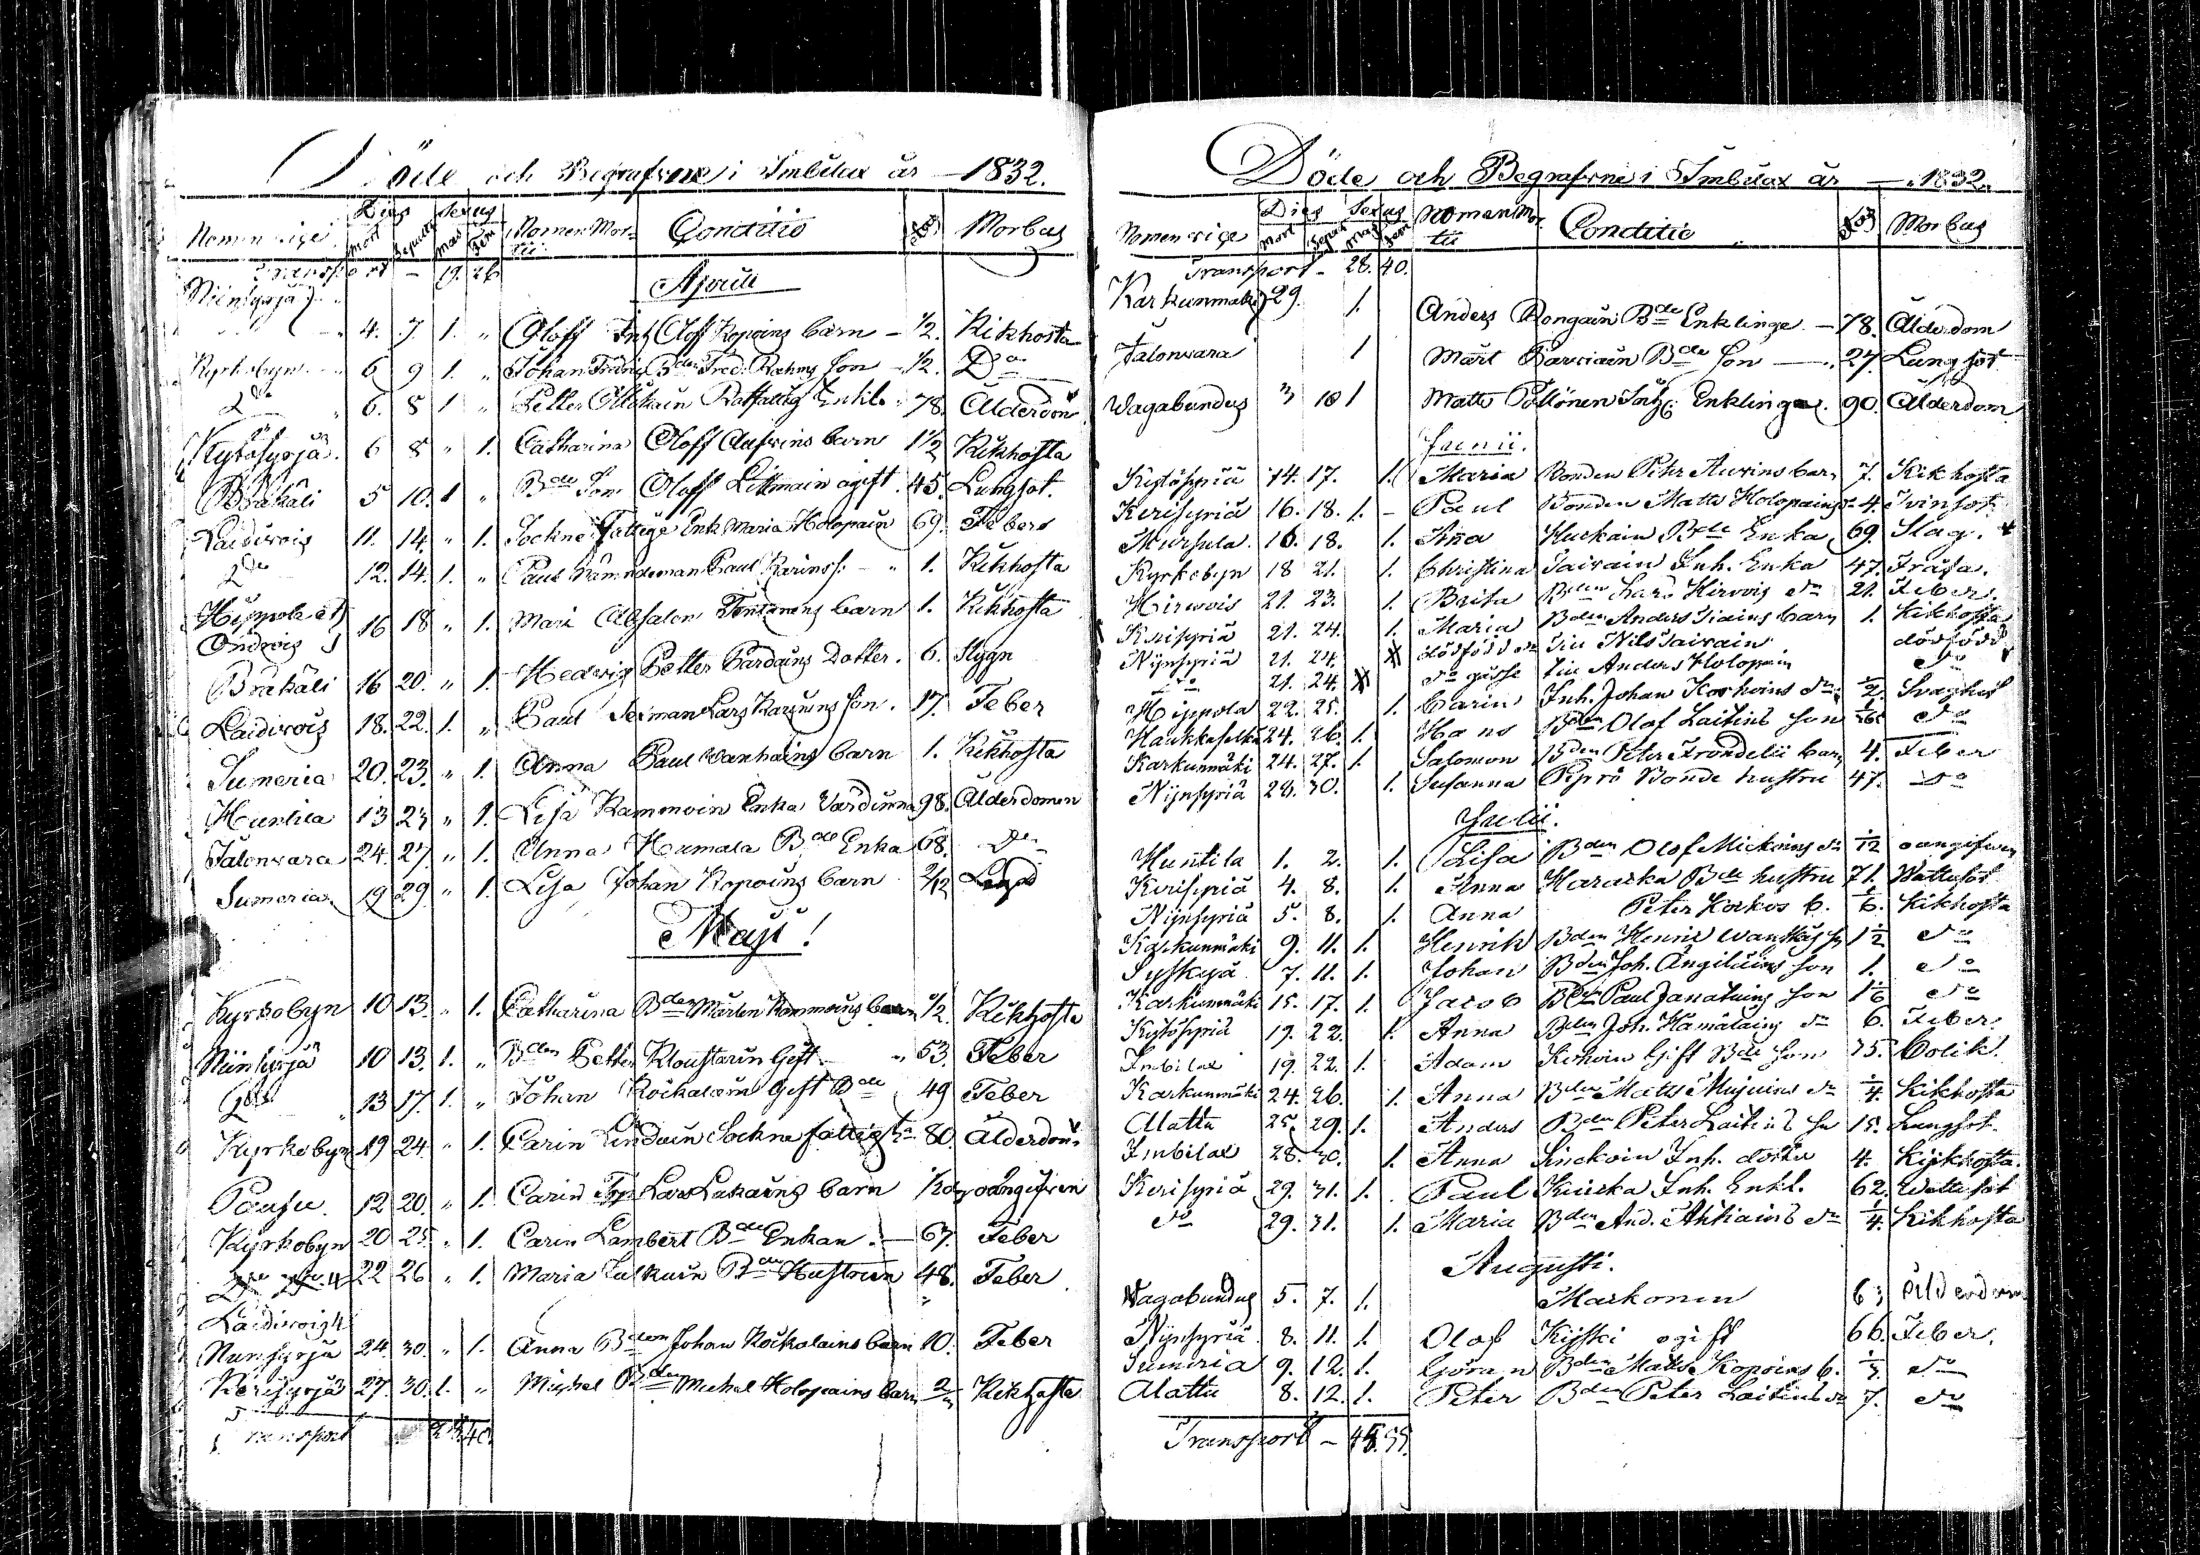 Döde och Begrafvne i Imbilax år — 1832.
Nomen vici Dies Sexus Nomen Mortui Conditio Morbus
mort sepult mas fem
Transport — 19. 26
Niinsyrjä
Aprill
4. 7. 1. „ Oloff Inh Oloff Kopoins barn — 1/2. Kikhosta
Kyrkobyn 6 9 1. „ Johan Fredric Bden Fred. Rahms Son — 1/2. Do
Do 6. 8 1 „ Petter Rotfattig Enkl. 78. Ålderdom
Kytösyrjä 6 8 „ 1. Catharina Oloff Aufvins barn 1 1/2 Kikhosta
Bräkäli 5 10. 1 „ Bde Son Oloff Litmain ogift 45. Lungsot.
Laidivois 11. 14. „ 1. Sockne Fattige Enk Maria Holopain 69. Feber
Do 12. 14. 1. „ Paul Paul Karins s. „ 1. Kikhosta
Hippola et
Ondrois 16 18 „ 1. Mari Absalon barn 1. Kikhosta
Bräkäli 16 20. „ 1. Hedvig Petter Pardains Dotter. 6. Stygn
Laidivois 18. 22. 1. „ Paul Lars son. 17. Feber
Sumeria 20. 23. „ 1. Anna Paul Vanhains barn 1. Kikhosta
Huntila 13 23 „ 1. Lisa Rammoin Enka Värdinna 98. Ålderdomen
Jalonvara 24. 27. „ 1. Anna Humala Bde Enka 68. Do
Sumeria 19 29 „ 1. Lisa Johan Kopoins barn 2/12
Maji!
Kyrkobyn 10 13. „ 1. Catharina Bden Mårten Rommoins barn 1/2. Kikhosta
Niinsyrjä 10 13. 1. „ Bden Petter Kloustarin Gift — „ 53. Feber
Do „ 13 17. 1. „ Johan Kockalain Gift Bde 49 Feber
Kyrkobyn 19 24. „ 1. Carin Lindain Sockne fattig 80. Ålderdom
Pausu. 12 20. „ 1. Carin Lars barn oangifven
Kyrkobyn 20 25. „ 1. Carin Lambert Bde Enkan. — 67. Feber
22 26 „ 1. Maria Bde Hustrun 48. Feber
Laidivois
Niinsyrjä 24. 30. „ 1. Anna Bden Johan Kockolains barn 10. Feber
Kerisyrjä 27. 30. 1. „ Michel Bden Michel Holopains barn Kikhosta
Transport 28. 40.
Döde och Begrafvne i Imbilax år — 1832.
Nomen vici Dies Sexus Nomen Mortui Conditio Morbus
mort sepult mas fem
Transport — 28. 40.
Karkunmäki 29. 1. Anders Rongain Bde Enklinge — 78. Ålderdom
Jalonvara 1 Mårt Parviain Bde Son — 27. Lungsot
Wagabundus 3 10 1 Matts Pöllönen Enklinge. 90. Ålderdom
Junii.
Kytösyriä 14. 17. 1. Maria Bonden Pehr Auvins barn 7. Kikhosta
Kerisyriä 16. 18. 1. — Paul Bonden Matts Holopains 4. Tvinsot
Mursula. 16. 18. 1. Anna Kuckain Bde Enka 69. Slag.
Kyrkobyn 18 21. 1. Christina Taivain Inh. Enka 47. Fråsa.
Hirvois 21. 23. 1. Brita Bden Lars Hirvois dr 21. Feber.
Kerisyriä 21. 24. 1. Maria Bden Anders barn 1. Kikhosta
Nijnsyriä 21. 24. dödfödd dr Nils Taivain dödfödd
Do 21. 24. do gosse Anders Holopain do
Hippola 22. 25. 1. Carin Inh. Johan Korhoins dr 1/2. Svaghet
Haukkaselkä 24. 26. 1. Hans Bden Olof Laitins son do
Karkunmäki 24. 27. 1. Salomon Bden Peter Trondelii barn 4. Feber
Nijnsyriä 28. 30. 1. Susanna Bonde hustru 47. do
Julii.
Huntila 1. 2. 1. Lisa Bden Olof Mickoins dr 1/12 oangifven
Kerisyriä 4. 8. 1. Anna Hararka Bde hustru 71. Wattusot
Nijnsyriä 5. 8. 1. Anna Peter Korkos b. 1/6. Kikhosta
Karkunmäki 9. 11. 1. Henrik Bden Henric Wanskas sn 1 1/2 do
Syskyjä 7. 11. 1. Johan Bden Joh. Angiluins son 1. do
Karkunmäki 15. 17. 1. Jacob Bden Paul Janatuins son 1 1/6 do
Kytösyriä 19. 22. 1. Anna Bden Joh. Hämäläins dr 6. Feber.
Imbilax 19. 22. 1. Adam Gift Bde son 35. Colik.
Karkunmäki 24. 26. 1. Anna Bden Matts dr 1/4. Kikhosta
Alattu 25. 29. 1. Anders Bden Peter Laitins sn 15. Lungsot.
Imbilax 28. 30. 1. Anna Sinckoin Inh. dotter 4. Kikhosta.
Kerisyriä 29. 31. 1. Paul Inh. Enkl. 62. Wattusot
do 29. 31. 1. Maria Bden And. Ahtiains dr 1/4. Kikhosta
Augusti.
Wagabundus 5. 7. 1. Markonen 63 ålderdom
Nijnsyriä 8. 11. 1. Olof Kyski ogift 66. Feber.
Sumeria 9. 12. 1. Göran Bden Matts Kopoins b. 1/3. do
Alattu 8. 12. 1. Peter Bden Peter Laitins sn 7. do
Transport — 45. 55.